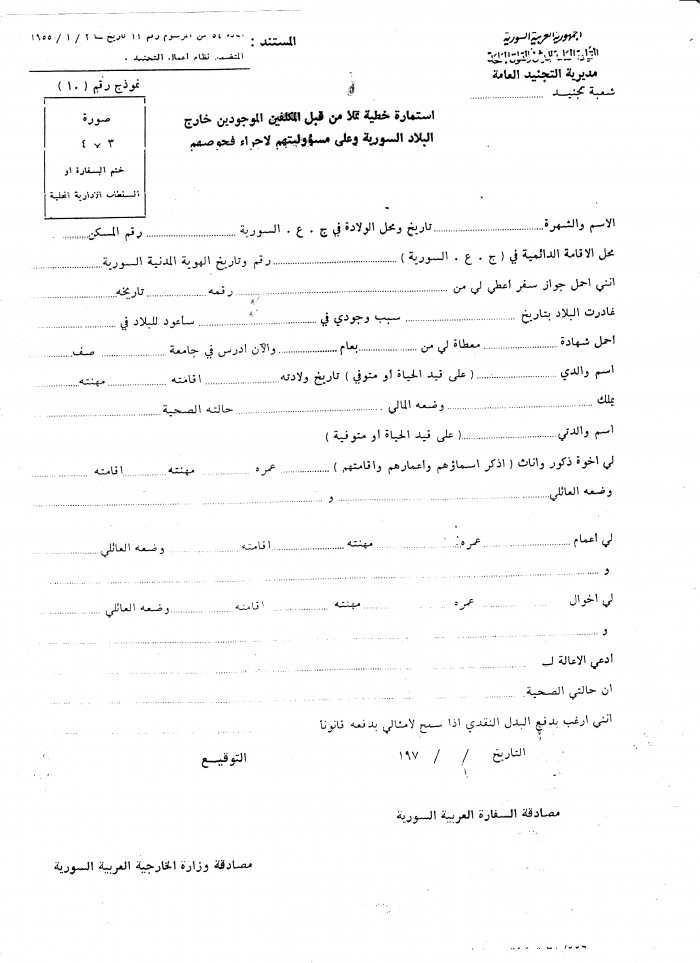 الجمهورية العربية السورية
القيادة العامة للجيش والقوات المسلحة
مديرية التجنيد العامة
شعبة تجنيد
المستند : المادة ٥٤ من المرسوم رقم ١١ تاريخ
المتضمن نظام أعمال التجنيد .
نموذج رقم ( ١٠ )
صورة
٣ × ٤
ختم السفارة او
السلطات الادارية المحلية
استمارة خطية تملأ من قبل المكلفين الموجودين خارج
البلاد السورية وعلى مسؤوليتهم لاجراء فحوصهم
الاسم والشهرة تاريخ ومحل الولادة في ج . ع . السورية رقم المسكن
محل الاقامة الدائمية في ( ج . ع . السورية ) رقم وتاريخ الهوية المدنية السورية
انني احمل جواز سفر أعطي لي من رقمه تاريخه
غادرت البلاد بتاريخ سبب وجودي في سأعود للبلاد في
احمل شهادة معطاة لي من بعام والآن ادرس في جامعة صف
اسم والدي ( على قيد الحياة او متوفي ) تاريخ ولادته اقامته مهنته
يملك وضعه المالي حالته الصحية
اسم والدتي ( على قيد الحياة او متوفية )
لي اخوة ذكور واناث ( اذكر اسماؤهم واعمارهم واقامتهم ) عمره مهنته اقامته
وضعه العائلي و
لي أعمام عمره مهنته اقامته وضعه العائلي
و
لي اخوال عمره مهنته اقامته وضعه العائلي
و
ادعي الاعالة لـ
ان حالتي الصحية
انني ارغب بدفع البدل النقدي اذا سمح لامثالي بدفعه قانونا
التاريخ / / ١٩٧ التوقيع
مصادقة السفارة العربية السورية
مصادقة وزارة الخارجية العربية السورية